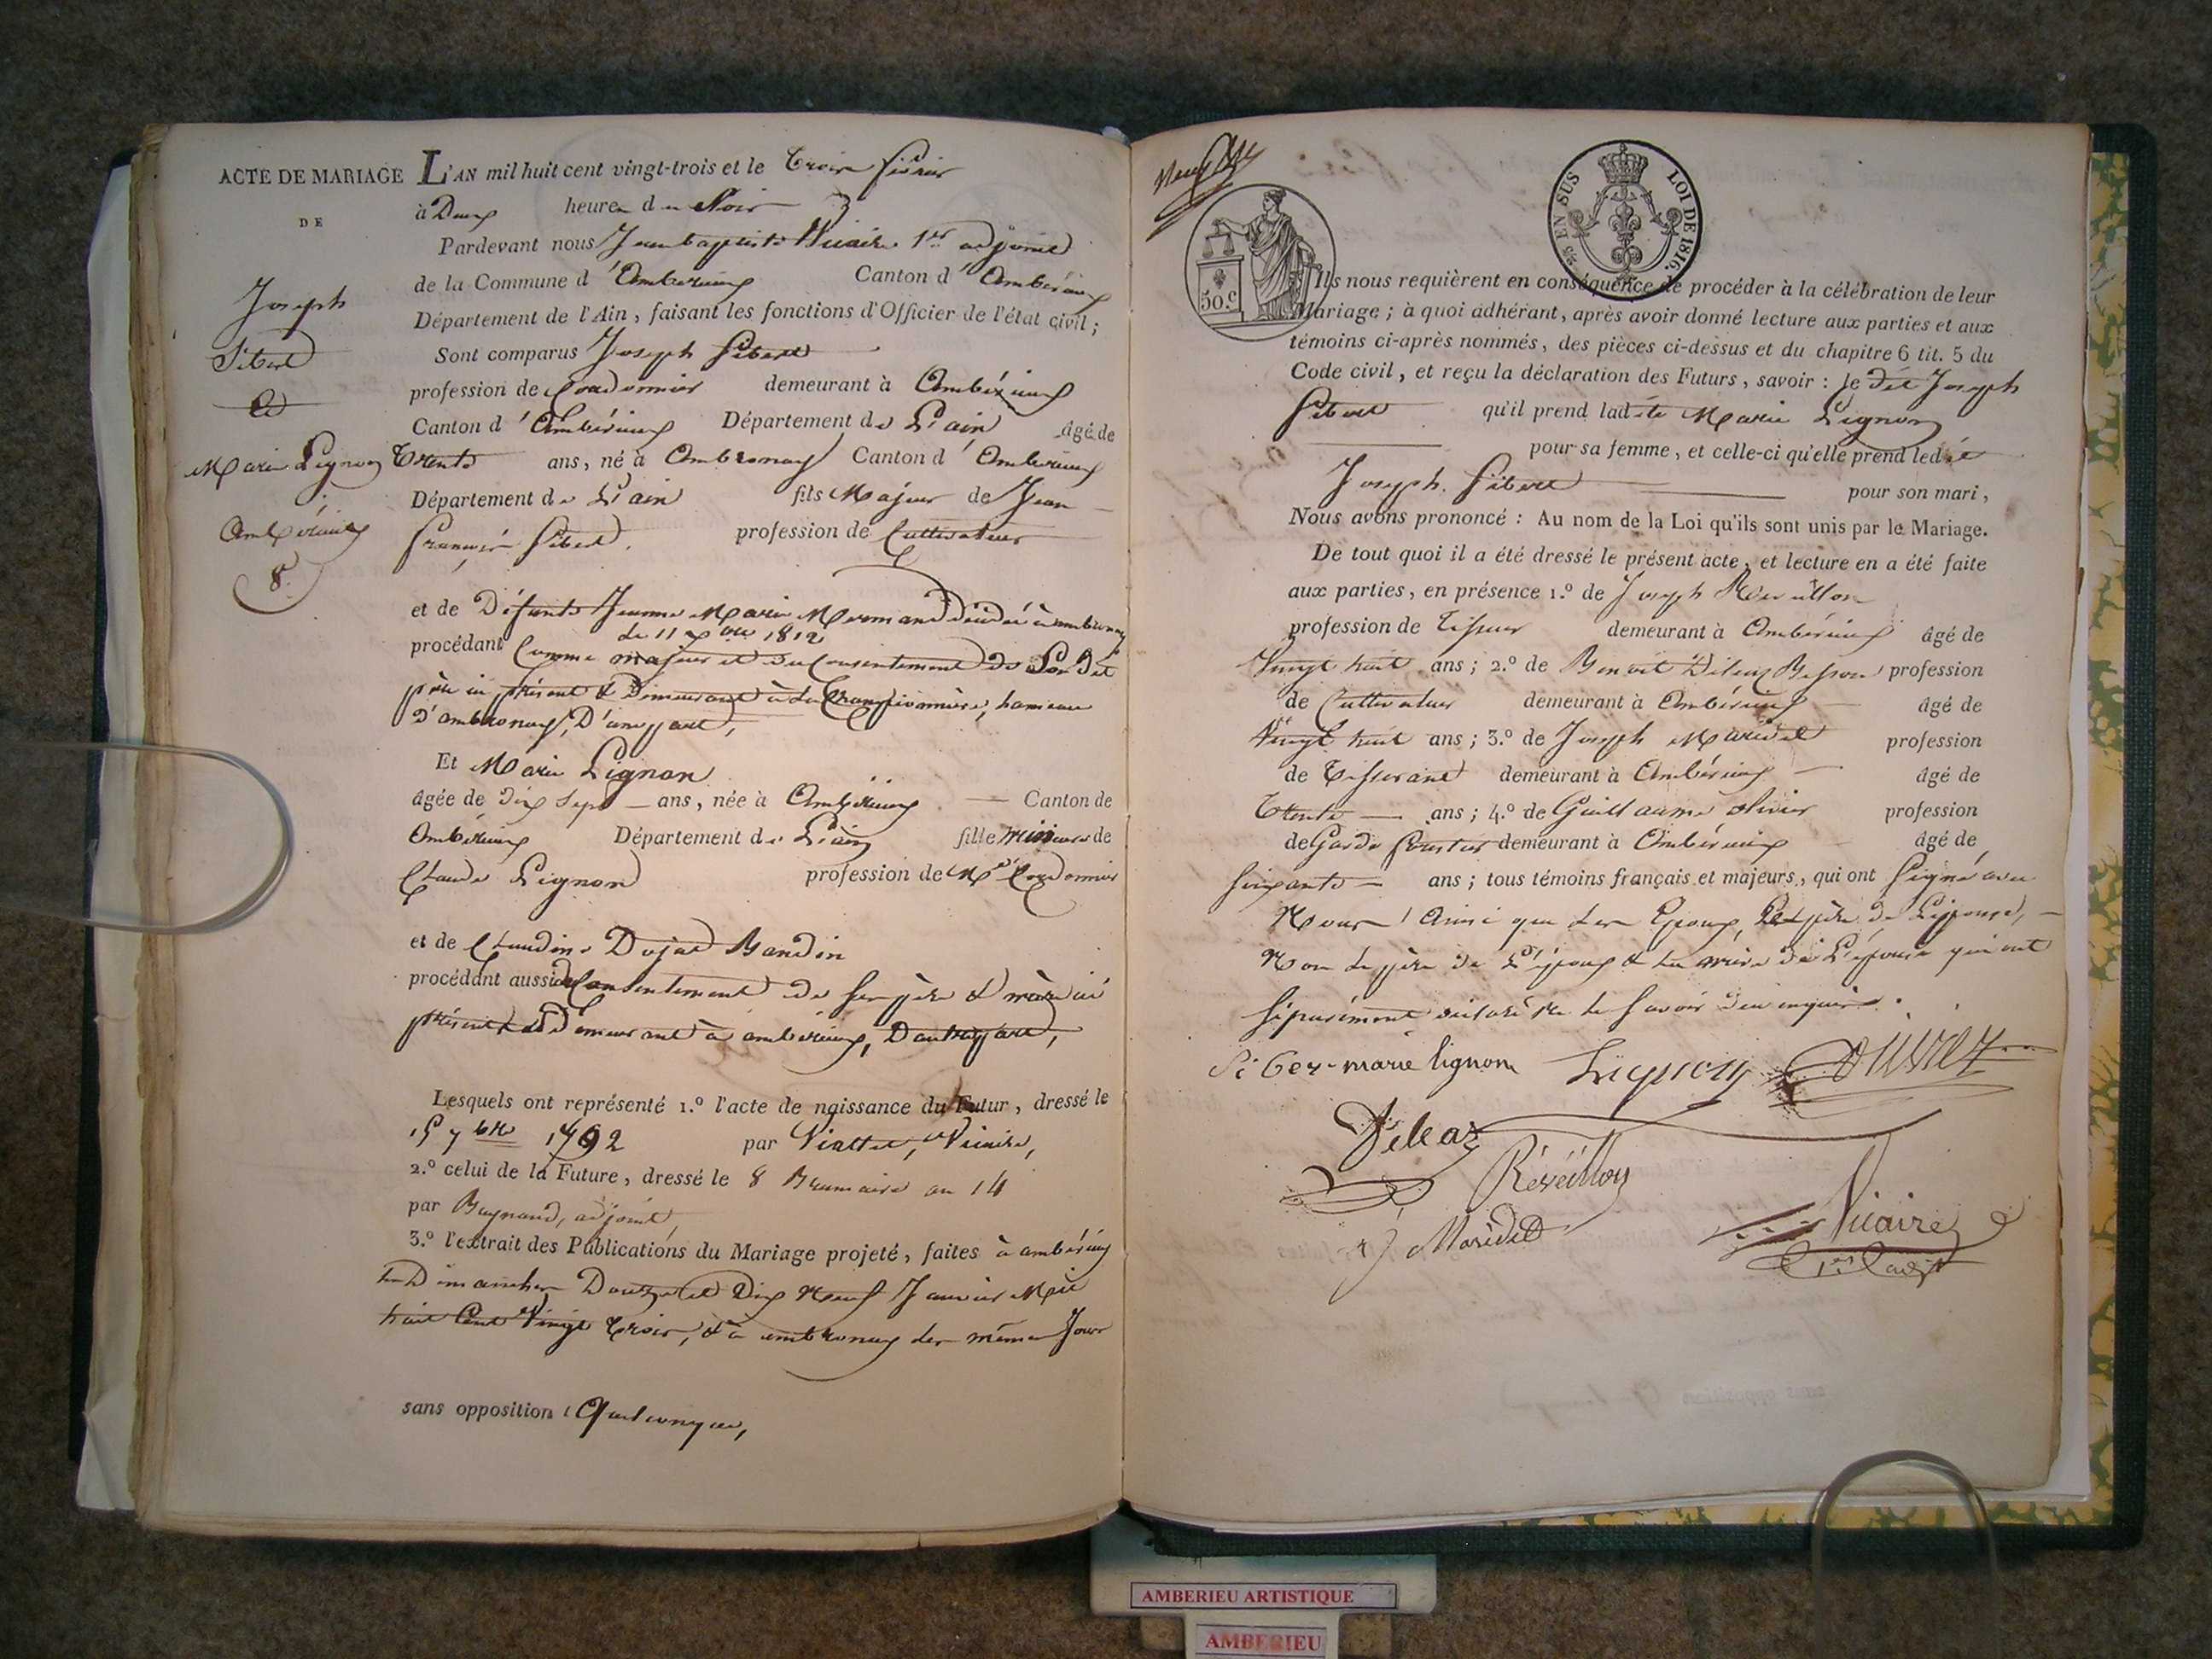 ACTE DE MARIAGE
DE
Joseph
Sibert
et
Marie Lignon
Ambérieux
8.
L'AN mil huit cent vingt-trois et le trois février
à Deux heures du Soir
Pardevant nous Jean baptiste Vicaire 1er adjoint
de la Commune d'Ambérieux Canton d'Ambérieux
Département de l'Ain, faisant les fonctions d'Officier de l'état civil;
Sont comparus Joseph Sibert
profession de Cordonnier demeurant à Ambérieux
Canton d'Ambérieux Département de L'ain âgé de
trente ans, né à Ambronay Canton d'Ambérieux
Département de L'ain fils Majeur de Jean
françois Sibert, profession de Cultivateur
et de Défunte Jeanne Marie Mermand décédée à ambronay
le 11 1812
procédant Comme majeur et du Consentement de Son dit
père ici présent & Demeurant à hameau
d'ambronay, D'une part,
Et Marie Lignon
âgée de dix sept ans, née à Ambérieux Canton de
Ambérieux Département de L'ain fille mineure de
Claude Lignon profession de Md Cordonnier
et de Claudine Dujat Bandin
procédant aussi du Consentement de ses père & mère ici
présents et Demeurant à ambérieux, D'autre part,
Lesquels ont représenté 1.º l'acte de naissance du Futur, dressé le
15 7bre 1792 par Viallet, Vicaire,
2.º celui de la Future, dressé le 8 Brumaire an 14
par Baynaud, adjoint
3.º l'extrait des Publications du Mariage projeté, faites à ambérieux
les Dimanches Douze et Dix Neuf Janvier Mil
huit Cent Vingt trois, & à ambronay les mêmes Jours
sans opposition Quelconque,
50.c
EN SUS LOI DE 1816.
Ils nous requièrent en conséquence de procéder à la célébration de leur
Mariage; à quoi adhérant, après avoir donné lecture aux parties et aux
témoins ci-après nommés, des pièces ci-dessus et du chapitre 6 tit. 5 du
Code civil, et reçu la déclaration des Futurs, savoir : le dit Joseph
Sibert qu'il prend ladite Marie Lignon
pour sa femme, et celle-ci qu'elle prend ledit
Joseph Sibert pour son mari,
Nous avons prononcé : Au nom de la Loi qu'ils sont unis par le Mariage.
De tout quoi il a été dressé le présent acte, et lecture en a été faite
aux parties, en présence 1.º de Joseph Réveillon
profession de Tisseur demeurant à Ambérieux âgé de
Vingt huit ans; 2.º de Benoit Béleaz Besson profession
de Cultivateur demeurant à Ambérieux âgé de
Vingt huit ans; 3.º de Joseph Maridet profession
de Tisserand demeurant à Ambérieux âgé de
trente ans; 4.º de Guillaume olivier profession
de Garde forestier demeurant à Ambérieux âgé de
soixante ans; tous témoins français et majeurs, qui ont Signé avec
Nous, Ainsi que les Epoux, Le père de L'épouse,
Non le père de L'époux & la mère de L'épouse qui ont
séparément déclaré ne le savoir de ce enquis.
Siber marie lignon Lignon Olivier
Réveillon
J Maridet
Vicaire
1er adjt
AMBERIEU ARTISTIQUE
AMBERIEU